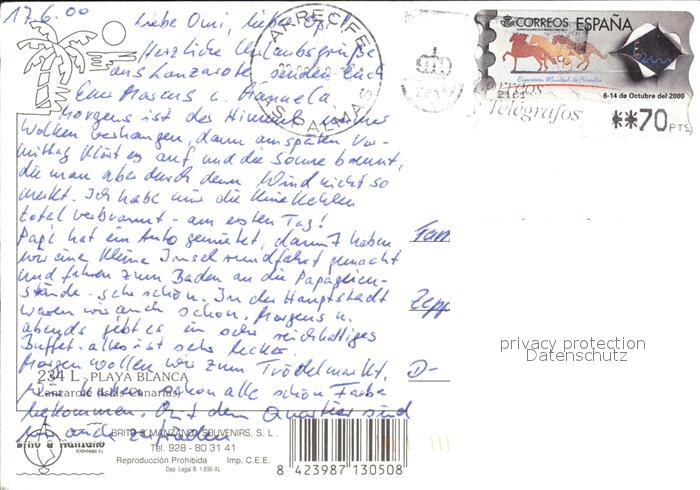 17.6.00
Liebe Omi, lieber Opi!
Herzliche Urlaubsgrüße
aus Lanzarote senden Euch
Eure Marcus u. Manuela.
Morgens ist der Himmel immer
Wolken verhangen, dann am späten Vor-
mittag klärt es auf und die Sonne brennt,
die man aber durch den Wind nicht so
merkt. Ich habe mir die Kniekehlen
total verbrannt - am ersten Tag!
Papi hat ein Auto gemietet, damit haben
wir eine kleine Inselrundfahrt gemacht
und fahren zum Baden an die Papageien-
strände - sehr schön. In der Hauptstadt
waren wir auch schon. Morgens u.
abends gibt es ein sehr reichhaltiges
Buffet - alles ist sehr lecker.
Morgen wollen wir zum Trödelmarkt.
Wir haben schon alle schön Farbe
bekommen. Mit dem Quartier sind
wir auch zufrieden
ARRECIFE
LAS PALMAS
CORREOS ESPAÑA
Exposición Mundial de Filatelia
6-14 de Octubre del 2000
Correos
y Telégrafos
**70 PTS
Fam
Zepp
D-
privacy protection
Datenschutz
234 L. PLAYA BLANCA
Lanzarote (Islas Canarias)
BRITO & MANZANO SOUVENIRS, S. L.
Tel. 928 - 80 31 41
Reproducción Prohibida Imp. C.E.E.
Dep. Legal B. 1.698-XL
Brito & Manzano
SOUVENIRS S.L.
8 423987 130508